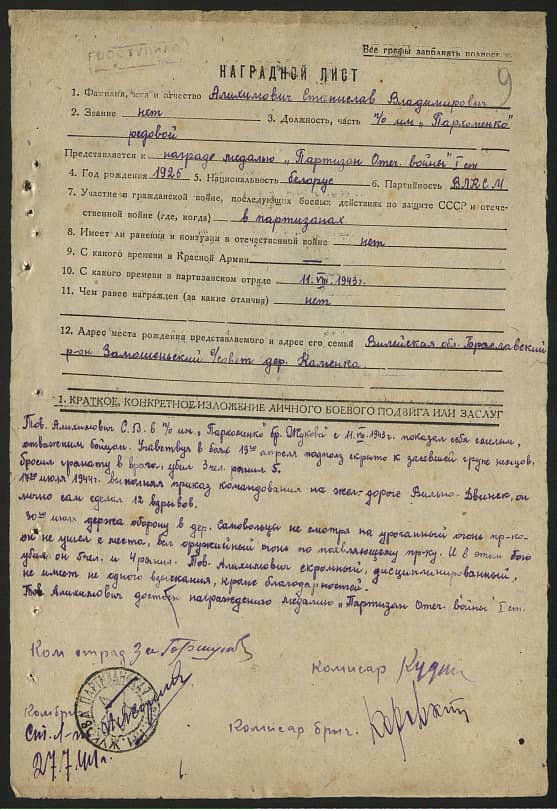 Все графы заполнять полностью
9
НАГРАДНОЙ ЛИСТ
1. Фамилия, имя и отчество Алихимович Станислав Владимирович
2. Звание нет 3. Должность, часть п/о им. „Пархоменко"
редовой
Представляется к награде медалью „Партизан Отеч. войны" I ст
4. Год рождения 1926 5. Национальность беларус 6. Партийность ВЛКСМ
7. Участие в гражданской войне, последующих боевых действиях по защите СССР и отече-
ственной войне (где, когда) в партизанах
8. Имеет ли ранения и контузии в отечественной войне нет
9. С какого времени в Красной Армии —
10. С какого времени в партизанском отряде 11.VIII.1943г.
11. Чем ранее награжден (за какие отличия) нет
12. Адрес места рождения представляемого и адрес его семьи Вилейская обл. Браславский
р-он Замошеньский с/совет дер. Каменка
1. КРАТКОЕ, КОНКРЕТНОЕ ИЗЛОЖЕНИЕ ЛИЧНОГО БОЕВОГО ПОДВИГА ИЛИ ЗАСЛУГ
Тов. Алихимович С.В. в п/о им. „Пархоменко" бр. Жукова с 11.VIII.1943г. показал себя смелым,
отважным бойцом. Учавствуя в бою апреля подполз скрито к засевшей групе немцов,
бросил гранату в врагов, убил 3 чел. ранил 5.
июля 1944г. выполняя приказ командования на жел-дороге Вильно-Двинск, он
лично сам сделал 12 взрывов.
30го июля держа оборону в дер. не смотря на ураганный огонь пр-ка-
он не ушел с места, вел оружийный огонь по пр-ку. И в этом бою
убил он 5 чел. и 4 ранил. Тов. Алихимович скромный, дисциплинированный,
не имеет не одного взыскания, кроме благодарностей.
Тов Алихимович достоен награждению медалью „Партизан Отеч. войны" I ст.
Ком отряд
Комисар
Комбриг
Комисар бриг.
27.7.44г.